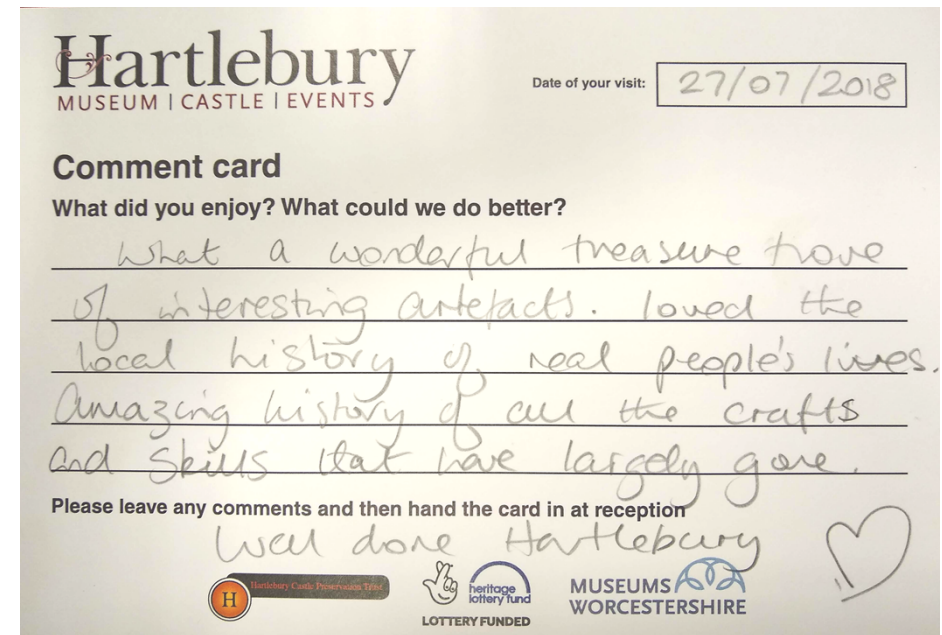 Hartlebury
MUSEUM | CASTLE | EVENTS
Date of your visit: 27/07/2018
Comment card
What did you enjoy? What could we do better?
What a wonderful treasure trove
of interesting artefacts. loved the
local history of real people's lives.
Amazing history of all the crafts
and skills that have largely gone.
Please leave any comments and then hand the card in at reception
Well done Hartlebury
H Hartlebury Castle Preservation Trust
heritage
lottery fund
LOTTERY FUNDED
MUSEUMS
WORCESTERSHIRE